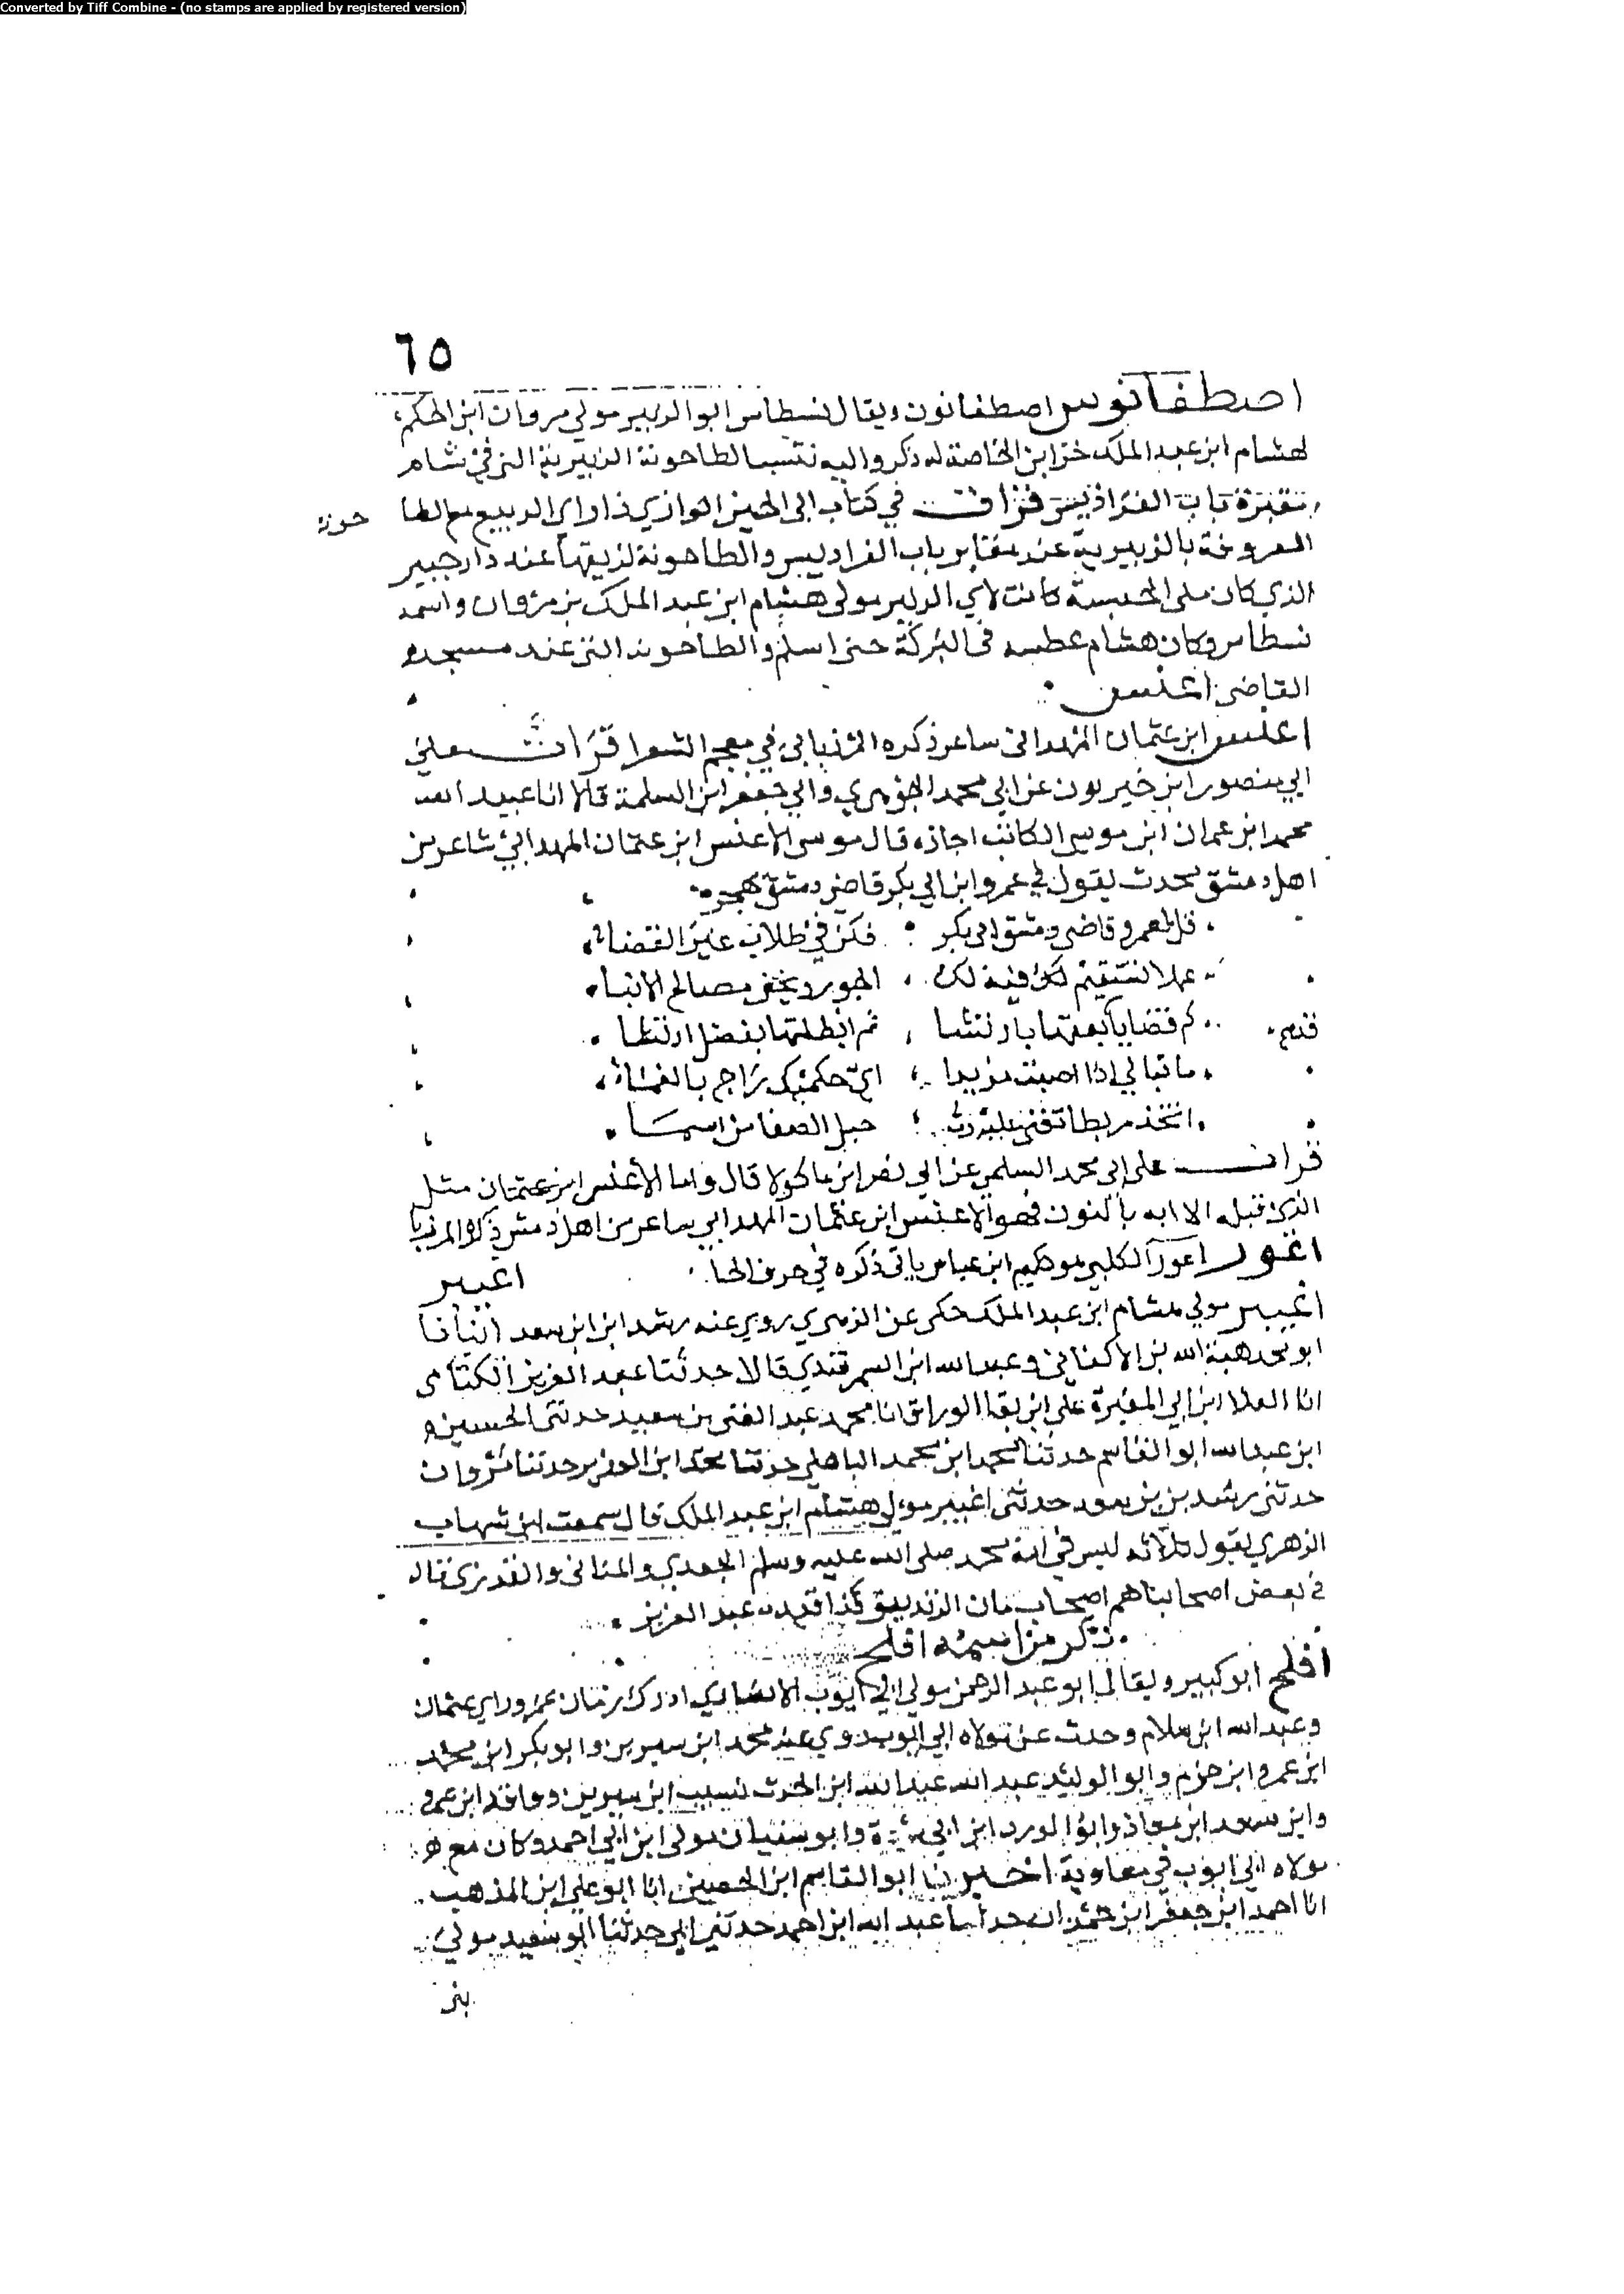 Converted by Tiff Combine - (no stamps are applied by registered version)
٦٥
اصطفانوس اصطفانون ويقال نسطاس ابو الزبير مولي مروان ابن الحكم
هشام ابن عبد الملك خزاين الخاصة له ذكر واليه تنتسب الطاحونة الزبيرية التي في شام
مقبرة باب الفراديس قرأت في كتاب ابي الحسين الرازي ذار ابي الربيع مع الطا
حونة
المعروفة بالزبيرية عند مقابر باب الفراديس والطاحونة لزيقها عند دار جبير
الذي كان على الحبسة كانت لابي الزبير مولى هشام ابن عبد الملك بن مروان واسمه
نسطاس وكان هشام غطسه في البركة حتى اسلم والطاحونة التي عند مسجده
القاضي اعنس
اعنس ابن عثمان الهمداني ساعر ذكره المرزباني في معجم الشعرا قرأت على
ابي منصور ابن خيرون عن ابي محمد الجوهري وابي جعفر ابن المسلمة قالا انا عبيد الله
محمد ابن عمران ابن موسى الكاتب اجازه قال موسى الاعنس ابن عثمان الهمداني شاعر من
اهل دمشق يحدث يقول في عمرو ابن ابي بكر قاضي دمشق يهجوه
قل لعمرو قاضي دمشق ابي بكر فكن في طلاب غير القضاء
عملا نستقيم لك فيه لك الجور ويخفى مصالح الانباء
قدم كم قضايا بعتها بارتشا ثم ابطلتها بفضل ارتشا
ما تبالي اذا اصبت مزيدا اي حكميك راج بالفشاء
اتخذ مربطا تغني عليه حبل الصفا من اسما
قرات على ابي محمد السلمي عن ابي نصر ابن ماكولا قال واما الأعنس ابن عثمان مثل
الذي قبله الا انه بالنون فهو الاعنس ابن عثمان الهمداني ساعر من اهل دمشق ذكره المرزبا
اعور اعور الكلبي هو حكيم ابن عياس ياتي ذكره في حرف الحا اغيبر
اغيبر مولي هشام ابن عبد الملك حكى عن الزهري روي عنه رشد ابن ابن سعد انبأنا
ابو محمد هبة الله بن الاكفاني وعبد الله ابن السمرقندي قالا حدثنا عبد العزيز الكتاني
انا العلا ابن ابي المغيرة على ابن بقا الوراق انا محمد عبد الغني بن سعيد حدثني الحسين
ابن عبد الله ابو القاسم حدثنا محمد ابن محمد الباهلي حدثنا محمد ابن الوزير حدثنا مروان
حدثني رشد بن بن سعد حدثني اغيبر مولى هشام ابن عبد الملك قال سمعت ابن شهاب
الزهري يقول ثلاثة ليس في امة محمد صلى الله عليه وسلم الجعدي والمناني والقدري قال
في بعض اصحابنا هم اصحاب مان الزنديق كذا قيده عبد العزيز
ذكر من اسمه افلح
افلح ابو كبير ويقال ابو عبد الرحمن مولي ابي ايوب الانصاري ادرك زمان عمر وراي عثمان
وعبد الله ابن سلام وحدث عن مولاه ابي ايوب روي عنه محمد ابن سيرين وابو بكر ابن محمد
ابن عمرو ابن حزم وابو الوليد عبد الله عبد الله ابن الحرث نسيب ابن سيرين وواقد ابن عمرو
وابن سعد ابن معاذ وابو الورد ابن ابي وابو سفيان مولى ابن ابي احمد وكان مع
مولاه ابي ايوب في معاوية اخبرنا ابو القاسم ابن الحصين انا ابو علي ابن المذهب
انا احمد ابن جعفر ابن حمدان حدثنا عبد الله ابن احمد حدثني ابي حدثنا ابو سعيد مولي
بني